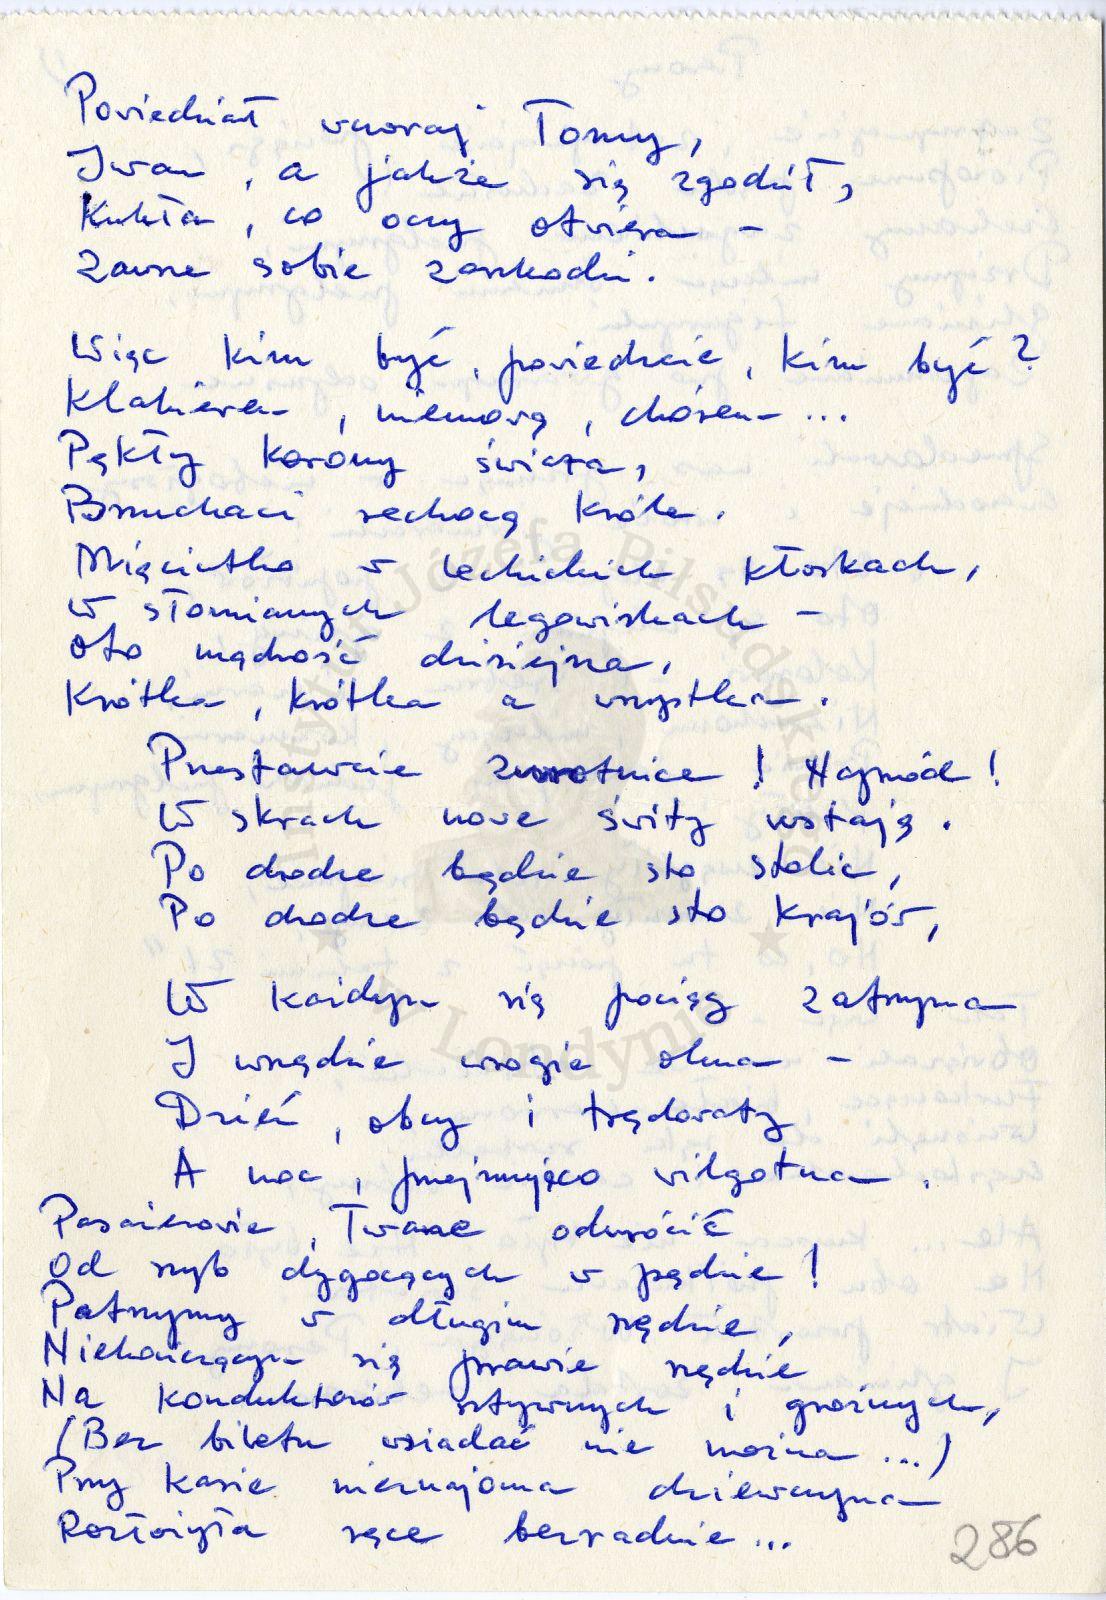 Powiedział wczoraj Tomy,
Iwan, a jakże się zgodził,
Kukła, co oczy otwiera –
Zawsze sobie zaszkodzi.
Więc kim być, powiedzcie, kim być?
Klakierem, niemową, chórem...
Pękły korony święta,
Brzuchaci zechcą króla.
Mięciutko w lechickich kłoskach,
W słomianych legowiskach –
Oto mądrość dzisiejsza,
Krótka, krótka a wszystka.
Przestawcie zwrotnice! Naprzód!
W skrach nowe świty wstają.
Po drodze będzie sto stolic,
Po drodze będzie sto krajów,
W każdym się pociąg zatrzyma
I wszędzie wrogie okna –
Dzień, obcy i trędowaty
A noc, przejmująco wilgotna.
Pasażerowie, Twarze odwrócić
Od szyb dygocących w pędzie!
Patrzymy w długim rzędzie,
Niekończącym się prawie rzędzie
Na konduktorów sztywnych i groźnych,
(Bez biletu wsiadać nie można...)
Przy kasie nieznajoma dziewczyna
Rozłożyła ręce bezradnie...
286
Instytut Józefa Piłsudskiego
w Londynie